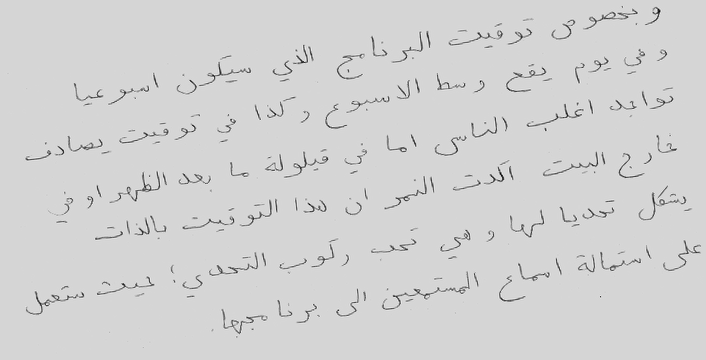 وبخصوص توقيت البرنامج الذي سيكون اسبوعيا
وفي يوم يقع وسط الاسبوع وكذا في توقيت يصادف
تواجد اغلب الناس اما في قيلولة ما بعد الظهر او في
خارج البيت أكدت النمر ان هذا التوقيت بالذات
يشكل تحديا لها وهي تحب ركوب التحدي؛ حيث ستعمل
على استمالة اسماع المستمعين الى برنامجها.